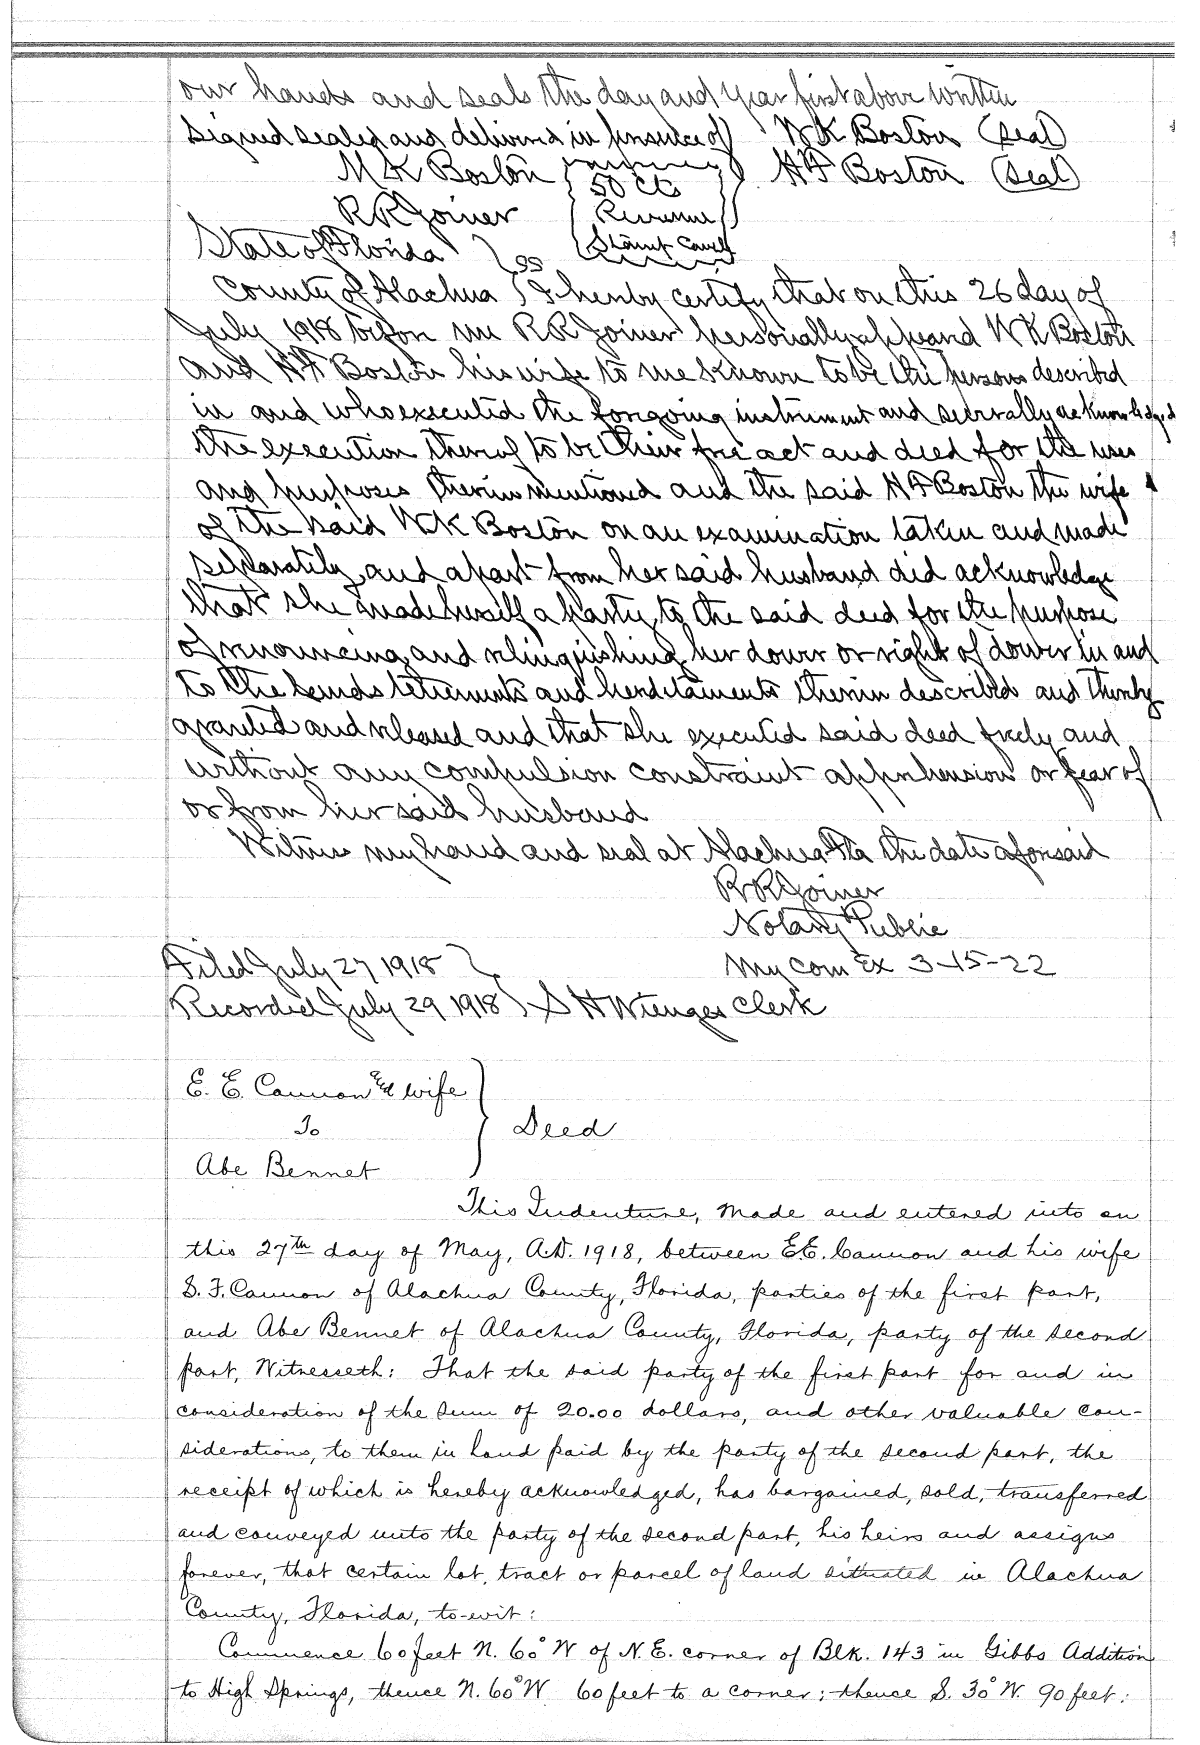 our hands and seals the day and year first above written
Signed sealed and delivered in presence of WK Boston (seal)
M K Boston HF Boston (seal)
50 cts
RR Joiner Revenue
State of Florida } ss Stamp Cancl
County of Alachua } I hereby certify that on this 26 day of
July 1918 before me RR Joiner personally appeared WK Boston
and HF Boston his wife to me known to be the persons described
in and who executed the foregoing instrument and severally acknowledged
the execution thereof to be their free act and deed for the uses
and purposes therein mentioned and the said HF Boston the wife
of the said WK Boston on an examination taken and made
separately and apart from her said husband did acknowledge
that she made herself a party to the said deed for the purpose
of renouncing and relinquishing her dower or right of dower in and
to the lands tetements and hereditaments therein described and thereby
granted and released and that she executed said deed freely and
without any compulsion constraint apprehension or fear of
or from her said husband
Witness my hand and seal at Alachua Fla the date aforesaid
RR Joiner
Notary Public
Filed July 27 1918 My Com Ex 3-15-22
Recorded July 29 1918 } S H Wienges Clerk
E. E. Cannon and wife
To } Deed
Abe Bennet
This Indenture, made and entered into on
this 27th day of May, A.D. 1918, between E.E. Cannon and his wife
S. F. Cannon of Alachua County, Florida, parties of the first part,
and Abe Bennet of Alachua County, Florida, party of the second
part, Witnesseth: That the said party of the first part for and in
consideration of the sum of 20.00 dollars, and other valuable con-
siderations, to them in hand paid by the party of the second part, the
receipt of which is hereby acknowledged, has bargained, sold, transferred
and conveyed unto the party of the second part, his heirs and assigns
forever, that certain lot, tract or parcel of land situated in Alachua
County, Florida, to-wit:
Commence 60 feet N. 60° W of N.E. corner of Blk. 143 in Gibbs Addition
to High Springs, thence N. 60° W 60 feet to a corner; thence S. 30° W. 90 feet;